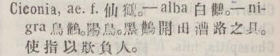 Ciconia, ae. f. 仙鶴.—alba 白鶴.—ni-
gra 烏鶴. 陽鳥. 黑鶴 開田漕路之具.
使指以欺負人.